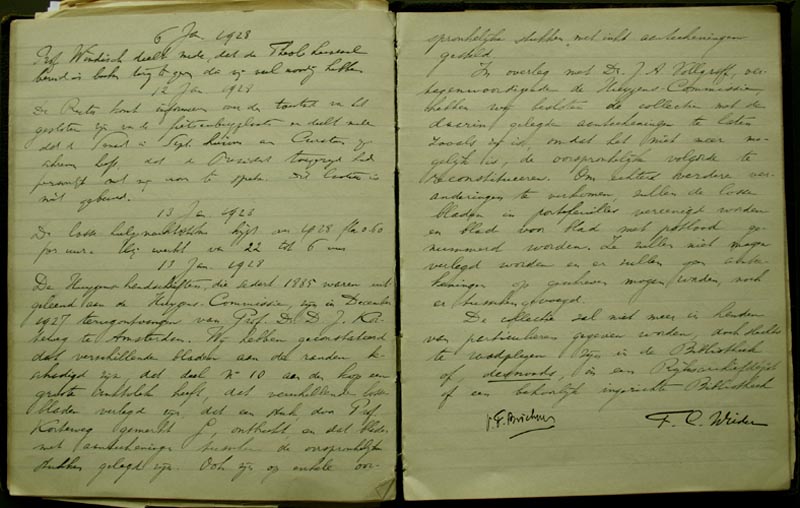 6 Jan 1928
Prof Windisch deelt mede, dat de Theol. 
boeken terug te geven da zij veel noodig hebben
12 Jan. 1928
De Rector komt informeeren over de toestand van het
gesloten zijn van de en deelt mede
dat de in Sept. en Curatoren
heeft, dat de President toegezegd had
persoonlijk met mij over te spreken. Dit laatste is
niet gebeurd.
13 Jan. 1928
De losse hulpnachtstoker krijgt in 1928 fl. 0.60
per uur. Hij werkt van 22 tot 6 uur
13 Jan. 1928
De Huygens handschriften, die sedert 1885 waren uit
geleend aan de Huygens-Commissie, zijn in December
1927 terugontvangen van Prof. Dr. D. J. Kor-
teweg te Amsterdam. Wij hebben geconstateerd
dat verschillende bladen aan de randen be-
schadigd zijn, dat deel No 10 aan de kop een
groote inktvlek heeft, dat verschillende losse
bladen verlegd zijn, dat een stuk door Prof.
Korteweg gemerkt ontbreekt en dat bladen
met aanteekeningen tusschen de oorspronkelijke
stukken gelegd zijn. Ook zijn op enkele oor-
spronkelijke stukken met inkt aanteekeningen
gesteld.
In overleg met Dr. J. A. Vollgraff, ver-
tegenwoordigende de Huygens-Commissie,
hebben wij besloten de collectie met de
daarin gelegde aanteekeningen te laten
zooals zij is, omdat het niet meer mo-
gelijk is, de oorspronkelijke volgorde te
reconstitueeren. Om echter verdere ver-
anderingen te voorkomen, zullen de losse
bladen in portefeuilles vereenigd worden
en blad voor blad met potlood ge-
nummerd worden. Ze zullen niet mogen
verlegd worden en er zullen geen aantee-
keningen op geschreven mogen worden, noch
er tusschen gevoegd.
De collectie zal niet meer in handen
van particulieren gegeven worden, doch slechts
te raadplegen zijn in de Bibliotheek
of, desnoods, in een Rijksarchiefdepôt
of een behoorlijk ingerichte Bibliotheek
F. C. Wieder